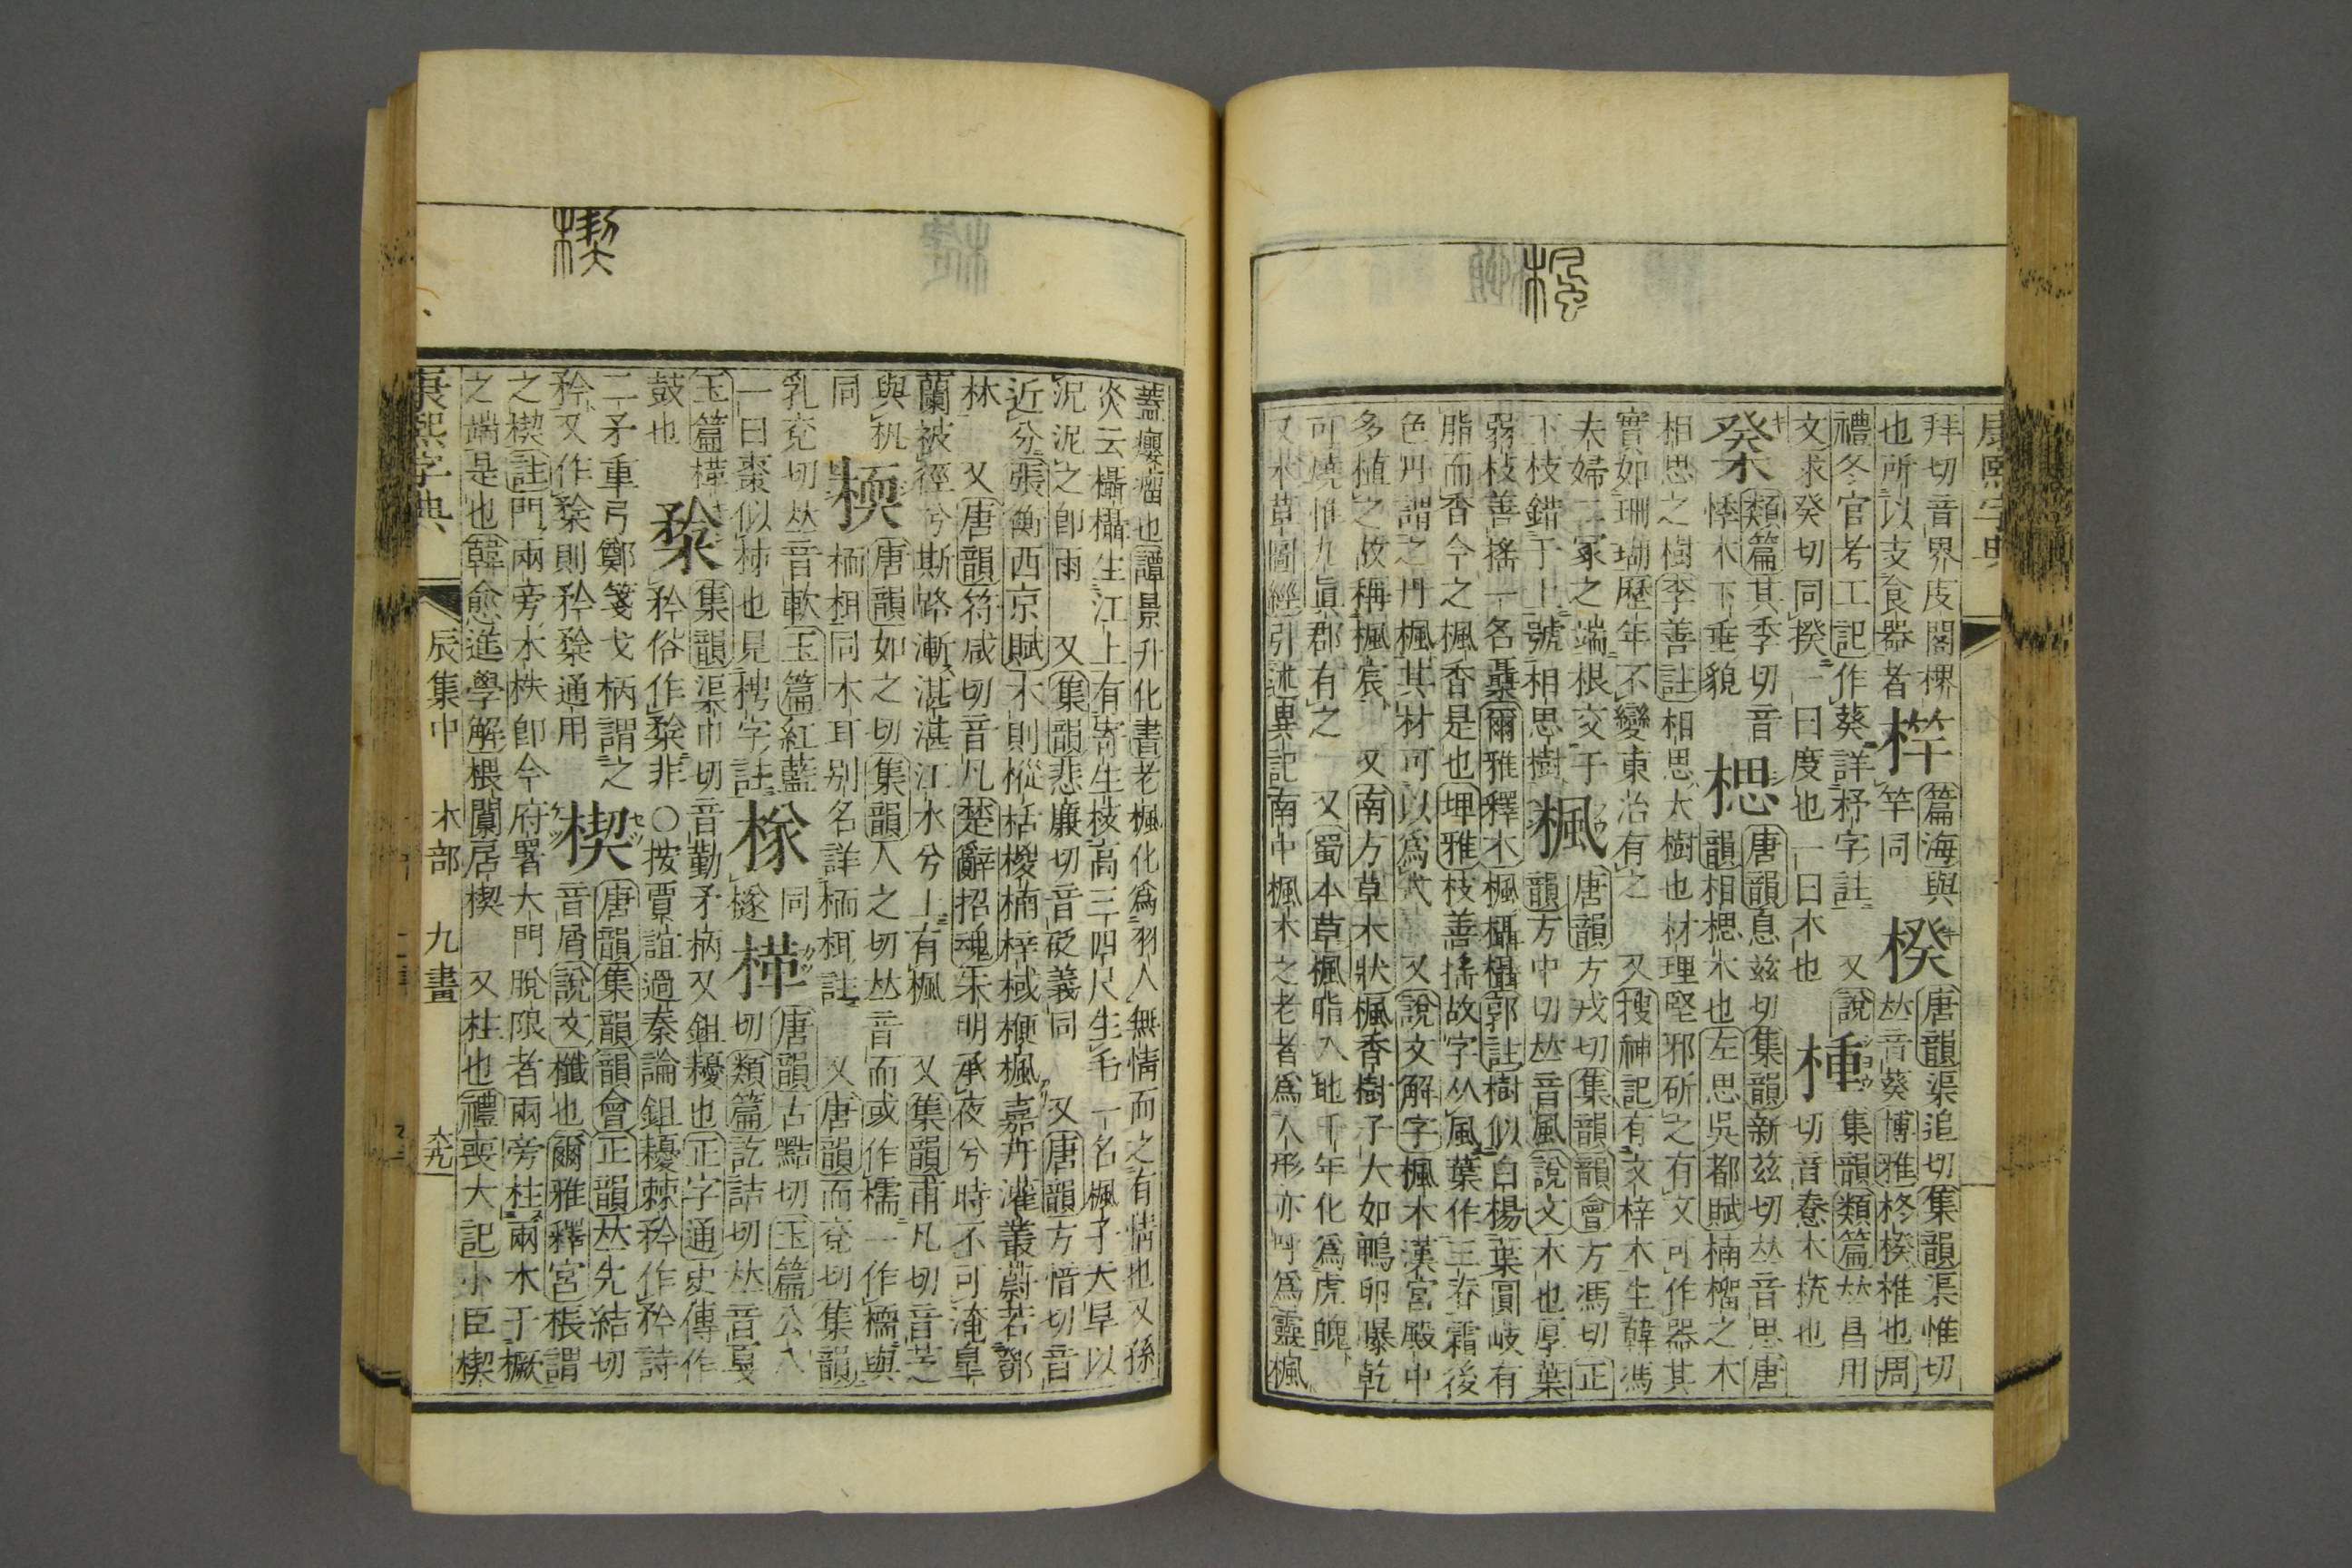 康熙字典
拜切音界庋閣
也所以支食器者
篇海與
竿同
楑
唐韻渠追切集韻渠惟切
𠀤音葵博雅柊楑椎也周
禮冬官考工記作葵詳杼字註　又說
文求癸切同揆一曰度也一曰木也
㮔
集韻類篇𠀤昌用
切音憃木㧡也
類篇其季切音
悸木下垂貌
楒
唐韻息茲切集韻新茲切𠀤音思唐
韻相楒木也左思吳都賦楠榴之木
相思之樹李善註相思大樹也材理堅邪斫之有文可作器其
實如珊瑚歷年不變東冶有之　又搜神記有文梓木生韓馮
夫婦二冢之端根交于
下枝錯于上號相思樹
楓
唐韻方戎切集韻韻會方馮切正
韻方中切𠀤音風說文木也厚葉
弱枝善搖一名欇爾雅釋木楓欇欇郭註樹似白楊葉圓岐有
脂而香今之楓香是也埤雅枝善搖故字从風葉作三脊霜後
色丹謂之丹楓其材可以爲式　又說文解字楓木漢宮殿中
多植之故稱楓宸　又南方草木狀楓香樹子大如鴨卵爆乾
可燒惟九眞郡有之　又蜀本草楓脂入地千年化爲虎魄
又本草圖經引述異記南中楓木之老者爲人形亦呼爲靈楓
蓋瘿瘤也譚景升化書老楓化爲羽人無情而之有情也又孫
炎云欇欇生江上有寄生枝高三四尺生毛一名楓子大旱以
泥泥之卽雨　又集韻悲廉切音砭義同　又唐韻方愔切音
近分張衡西京賦木則樅栝椶楠梓棫楩楓嘉卉灌叢蔚若鄧
林　又唐韻符咸切音凡楚辭招魂朱明承夜兮時不可淹皐
蘭被徑兮斯路漸湛湛江水兮上有楓　又集韻甫凡切音芝
與杋
同
楆
唐韻如之切集韻人之切𠀤音而或作檽一作㯶與
栭相同木耳别名詳栭栮註　又唐韻而兗切集韻
乳兗切𠀤音軟玉篇紅藍
一曰棗似柹也見梬字註
㮚
同
檖
楎
唐韻古黠切玉篇公八
切類篇訖詰切𠀤音戛
玉篇楎
鼓也
㮙
集韻渠巾切音勤矛柄又鉏櫌也正字通史傳作
矜俗作㮙非○按賈誼過秦論鉏櫌棘矜作矜詩
二矛重弓鄭箋戈柄謂之
矜又作㮙則矜㮙通用
楔
唐韻集韻韻會正韻𠀤先結切
音屑說文櫼也爾雅釋宮棖謂
之楔註門兩旁木柣卽今府署大門脫限者兩旁柱兩木于橛
之端是也韓愈進學解椳闑扂楔　又柱也禮喪大記小臣楔
康熙字典
辰集中　木部　九畫